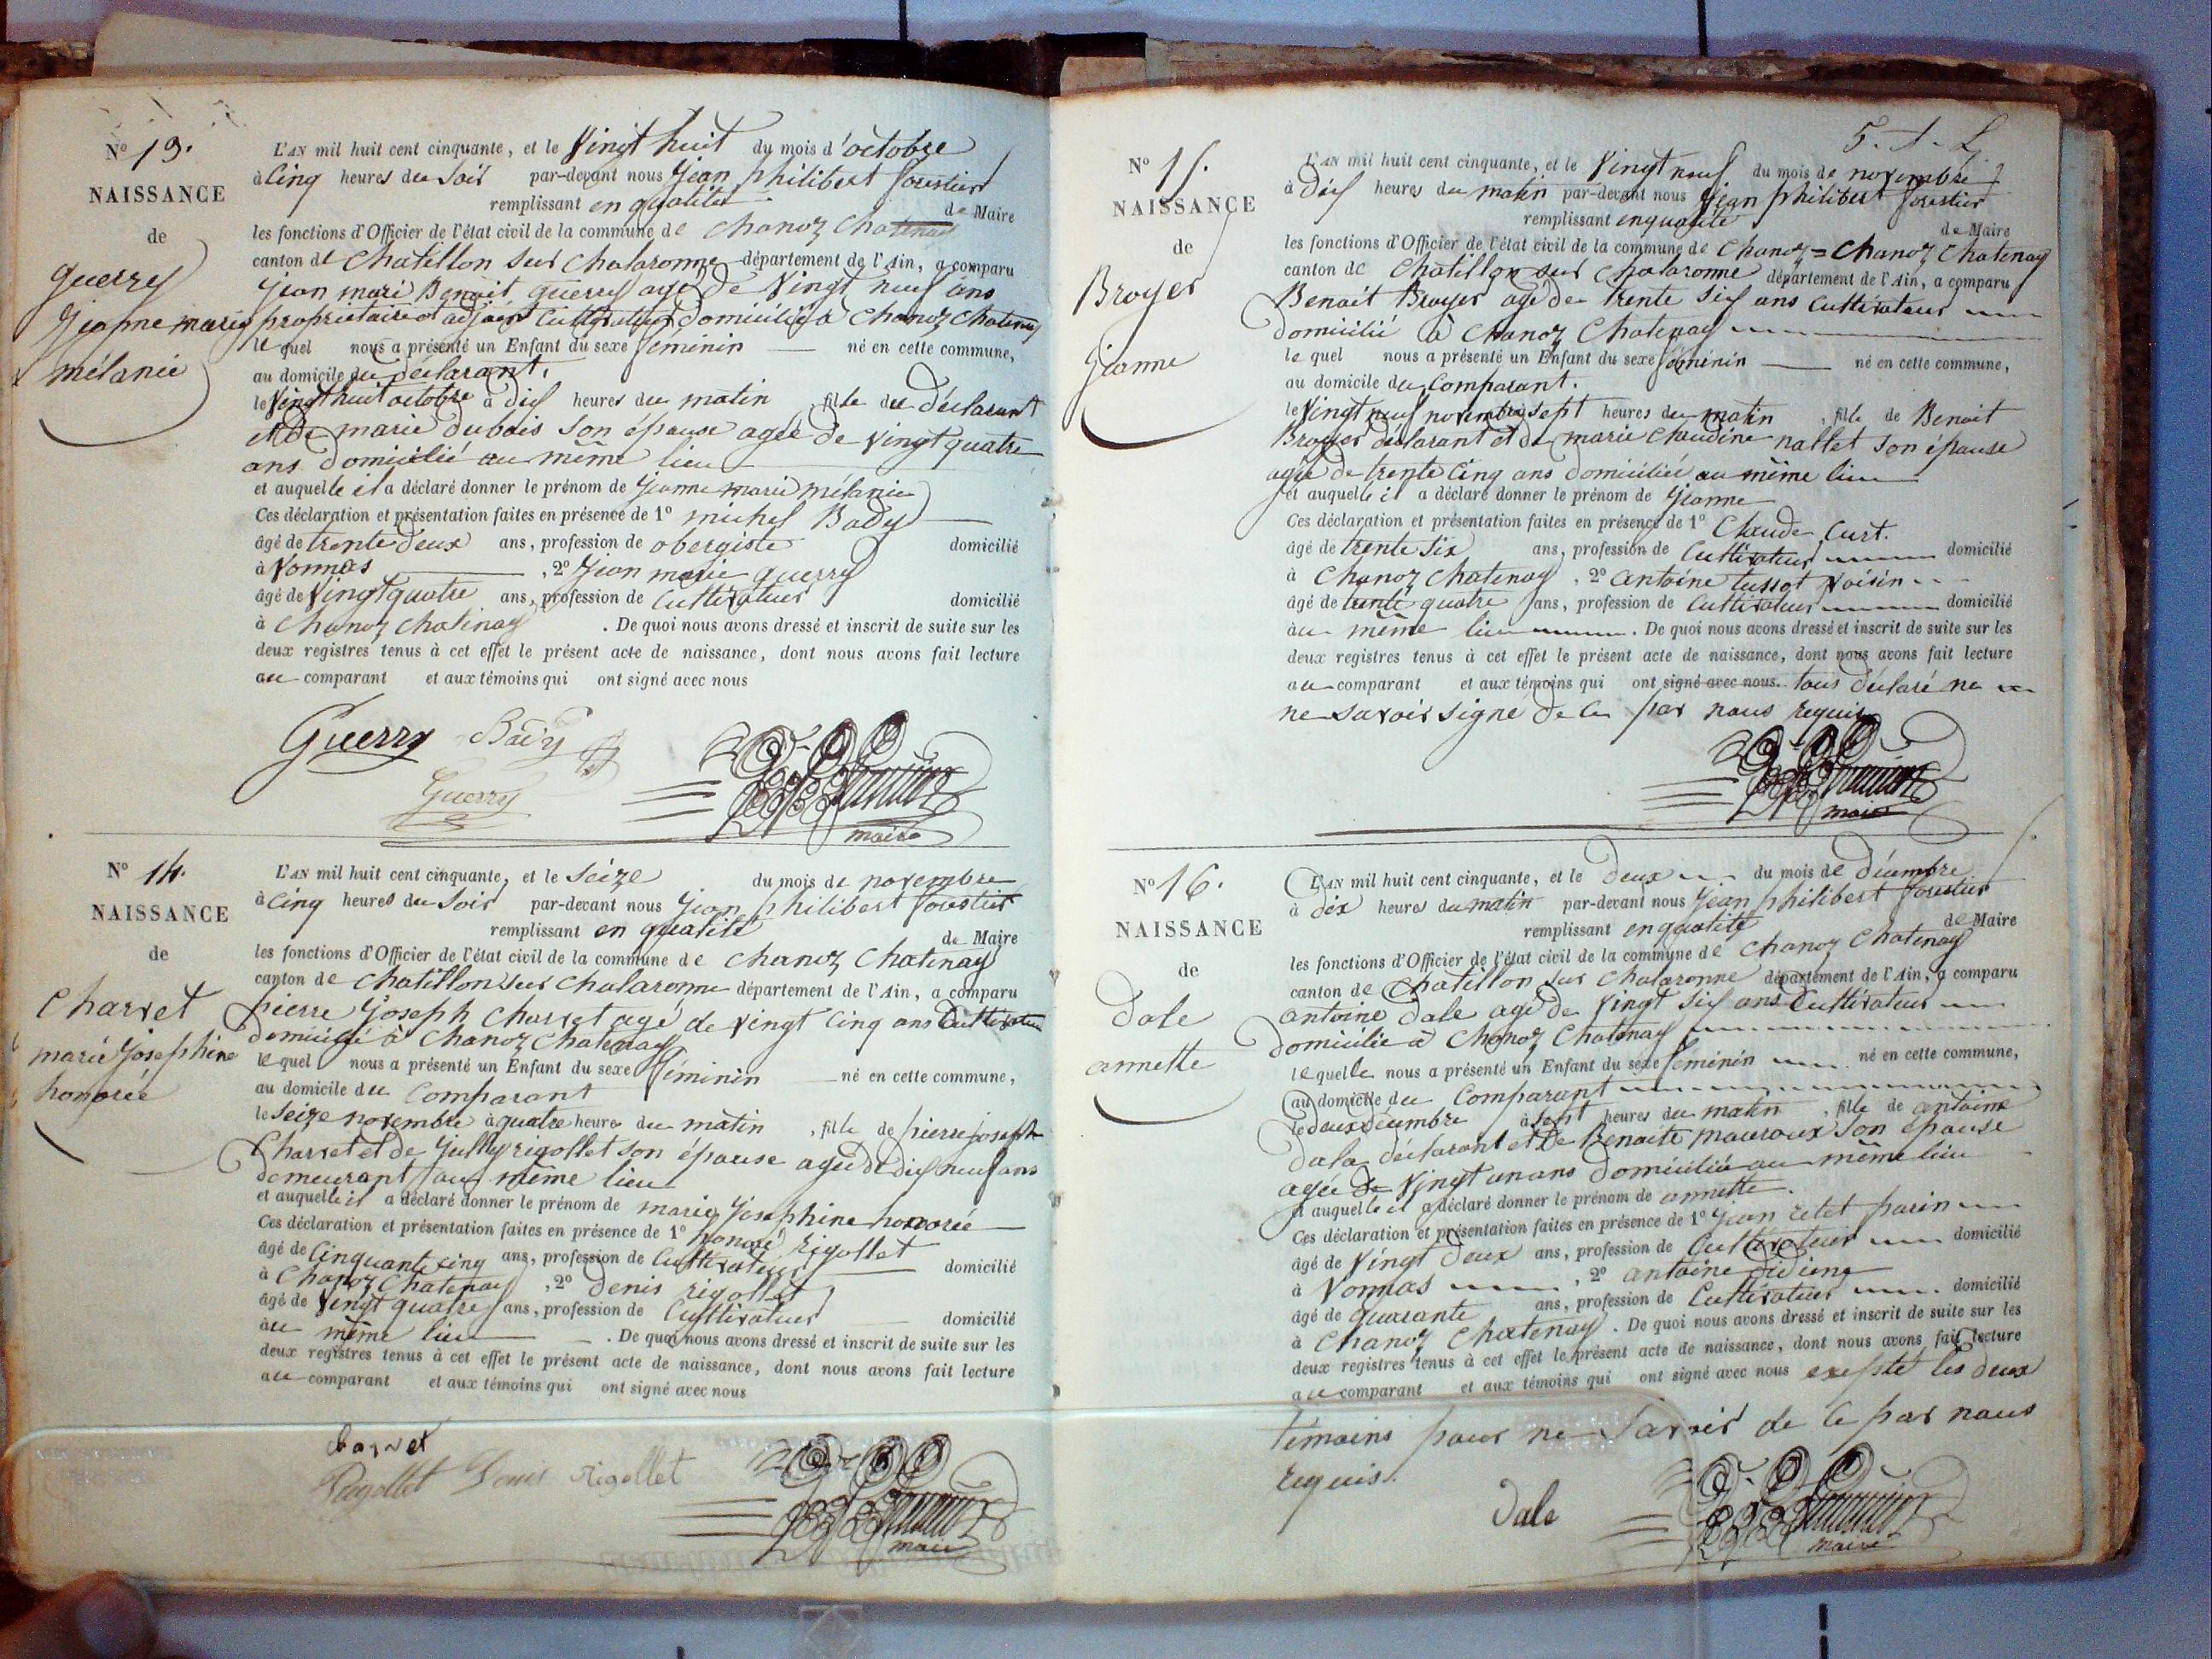 Nº 13.
NAISSANCE
de
guerry
Jeanne marie
mélanie
L'AN mil huit cent cinquante, et le Vingt huit du mois d'octobre
à Cinq heures du Soir par-devant nous Jean philibert forestier
remplissant en qualité de Maire
les fonctions d'Officier de l'état civil de la commune de Chanoz Chatenay
canton de Chatillon sur Chalaronne département de l'Ain, a comparu
Jean marie Benoit guerry agé de Vingt neuf ans
propriétaire et adjoint Cultivateur domicilié à Chanoz Chatenay
le quel nous a présenté un Enfant du sexe féminin né en cette commune,
au domicile du déclarant.
le Vingt huit octobre à dix heures du matin, fille du déclarant
et de marie dubois Son épouse agée de Vingt quatre
ans domicilié au même lieu
et auquelle il a déclaré donner le prénom de Jeanne marie mélanie
Ces déclaration et présentation faites en présence de 1º michel Bady
âgé de trente deux ans, profession de obergiste domicilié
à Vonnas, 2º Jean marie guerry
âgé de Vingt quatre ans, profession de Cultivateur domicilié
à Chanoz Chatenay. De quoi nous avons dressé et inscrit de suite sur les
deux registres tenus à cet effet le présent acte de naissance, dont nous avons fait lecture
au comparant et aux témoins qui ont signé avec nous
Guerry Bady
Guerry
maire
Nº 14.
NAISSANCE
de
Charvet
marie Josephine
honorée
L'AN mil huit cent cinquante, et le Seize du mois de novembre
à Cinq heures du Soir par-devant nous Jean philibert forestier
remplissant en qualité de Maire
les fonctions d'Officier de l'état civil de la commune de Chanoz Chatenay
canton de Chatillon sur Chalaronne département de l'Ain, a comparu
pierre Joseph Charvet agé de vingt Cinq ans Cultivateur
domicilié à Chanoz Chatenay
le quel nous a présenté un Enfant du sexe féminin né en cette commune,
au domicile du Comparant
le Seize novembre à quatre heures du matin, fille de pierre joseph
Charvet et de Jully rigollet son épouse agée de dix neuf ans
demeurant au même lieu
et auquelle il a déclaré donner le prénom de marie Josephine honorée
Ces déclaration et présentation faites en présence de 1º honoré rigollet
âgé de Cinquante cinq ans, profession de Cultivateur domicilié
à Chanoz Chatenay, 2º denis rigollet
âgé de Vingt quatre ans, profession de Cultivateur domicilié
au même lieu. De quoi nous avons dressé et inscrit de suite sur les
deux registres tenus à cet effet le présent acte de naissance, dont nous avons fait lecture
au comparant et aux témoins qui ont signé avec nous
Charvet
Rigollet Denis Rigollet
maire
Nº 15.
NAISSANCE
de
Broyer
Jeanne
L'AN mil huit cent cinquante, et le Vingt neuf du mois de novembre
à dix heures du matin par-devant nous Jean philibert forestier
remplissant en qualité de Maire
les fonctions d'Officier de l'état civil de la commune de Chanoz = Chanoz Chatenay
canton de Chatillon sur Chalaronne département de l'Ain, a comparu
Benoit Broyer agé de trente six ans Cultivateur
domicilié à Chanoz Chatenay
le quel nous a présenté un Enfant du sexe féminin né en cette commune,
au domicile du Comparant.
le Vingt neuf novembre sept heures du matin, fille de Benoit
Broyer déclarant et de marie Claudine nallet son épouse
agée de trente Cinq ans domiciliée au même lieu
et auquelle il a déclaré donner le prénom de Jeanne
Ces déclaration et présentation faites en présence de 1º Claude Curt.
âgé de trente Six ans, profession de Cultivateur domicilié
à Chanoz Chatenay, 2º Antoine tussot Voisin
âgé de trente quatre ans, profession de Cultivateur domicilié
au même lieu. De quoi nous avons dressé et inscrit de suite sur les
deux registres tenus à cet effet le présent acte de naissance, dont nous avons fait lecture
au comparant et aux témoins qui ont signé avec nous. tous déclaré ne
ne savoir signe de ce par nous requis
maire
Nº 16.
NAISSANCE
de
Dale
annette
L'AN mil huit cent cinquante, et le deux du mois de décembre
à dix heures du matin par-devant nous Jean philibert forestier
remplissant en qualité de Maire
les fonctions d'Officier de l'état civil de la commune de Chanoz Chatenay
canton de Chatillon sur Chalaronne département de l'Ain, a comparu
antoine Dale agé de Vingt six ans Cultivateur
domicilié à Chanoz Chatenay
lequelle nous a présenté un Enfant du sexe féminin né en cette commune,
au domicile du Comparant
le deux décembre à sept heures du matin, fille de antoine
Dale déclarant et de Benoite mauroux Son épouse
agée de Vingt un ans domiciliée au même lieu
et auquelle il a déclaré donner le prénom de annette.
Ces déclaration et présentation faites en présence de 1º Jean retet parin
âgé de Vingt deux ans, profession de Cultivateur domicilié
à Vonnas, 2º antoine didiere
âgé de quarante ans, profession de Cultivateur domicilié
à Chanoz Chatenay. De quoi nous avons dressé et inscrit de suite sur les
deux registres tenus à cet effet le présent acte de naissance, dont nous avons fait lecture
au comparant et aux témoins qui ont signé avec nous exepté les deux
témoins pour ne Savoir de ce par nous
requis.
Dale
maire